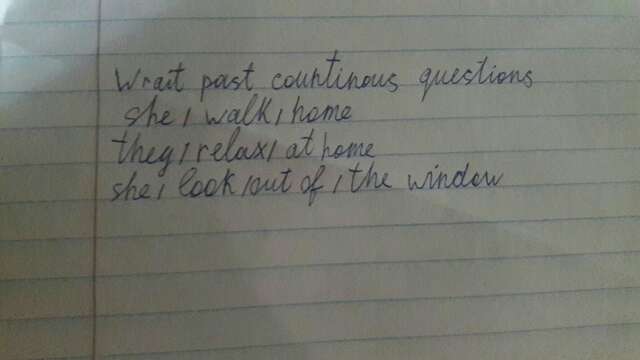 Wrait past countinous questions
she / walk / home
they / relax / at home
she / look / out of / the window